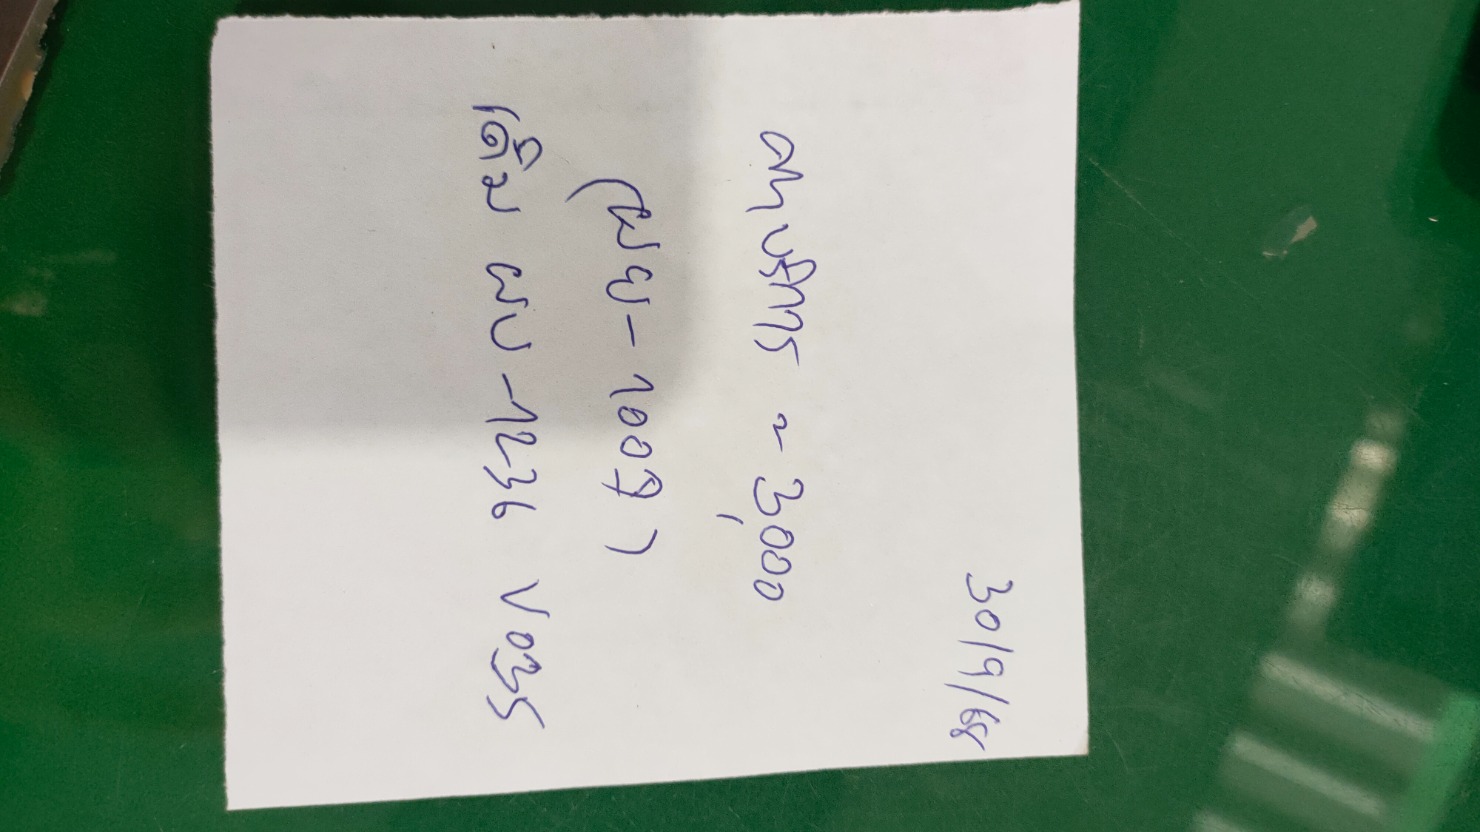 30/9/68
ค่าบริการ ~ 3,000
(ผย - 1009)
เดิม ผบ - 1236 V035